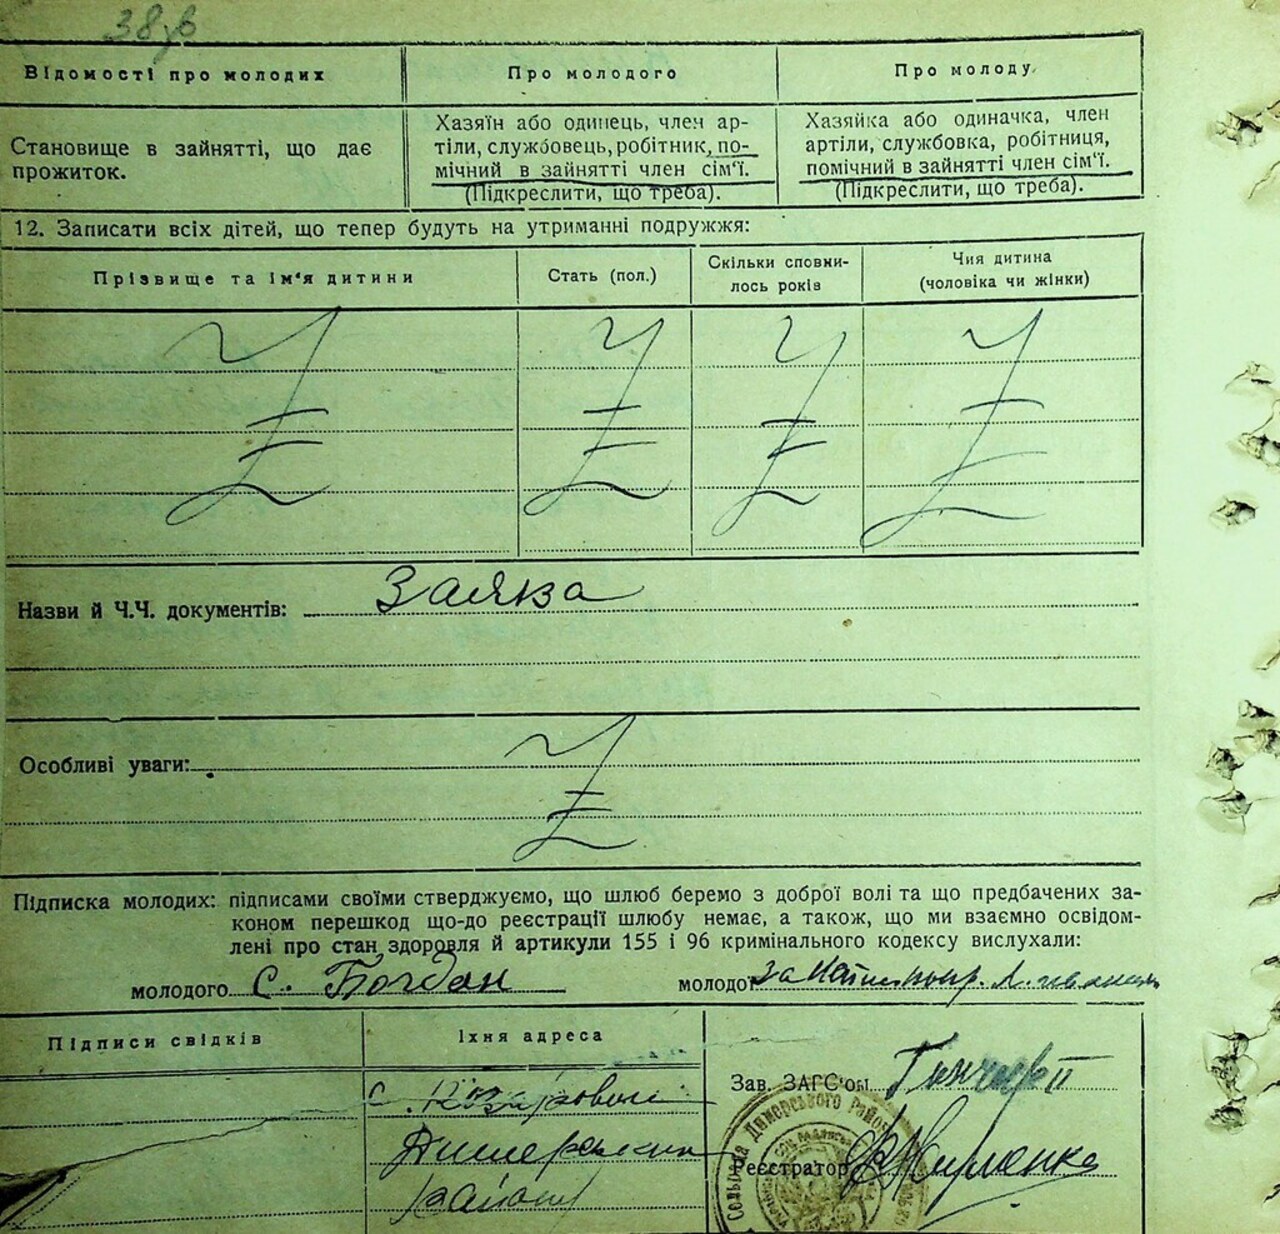 38зв
Відомості про молодих
Про молодого
Про молоду
Становище в зайнятті, що дає
прожиток.
Хазяїн або одинець, член ар-
тіли, службовець, робітник, по-
мічний в зайнятті член сім'ї.
(Підкреслити, що треба).
Хазяйка або одиначка, член
артіли, службовка, робітниця,
помічний в зайнятті член сім'ї.
(Підкреслити, що треба).
12. Записати всіх дітей, що тепер будуть на утриманні подружжя:
Прізвище та ім'я дитини
Стать (пол.)
Скільки сповни-
лось років
Чия дитина
(чоловіка чи жінки)
Назви й Ч.Ч. документів: Заява
Особливі уваги:
Підписка молодих: підписами своїми стверджуємо, що шлюб беремо з доброї волі та що предбачених за-
коном перешкод що-до реєстрації шлюбу немає, а також, що ми взаємно освідом-
лені про стан здоровля й артикули 155 і 96 кримінального кодексу вислухали:
молодого С. Богдан
молодої за
Підписи свідків
Їхня адреса
с. Козаровичі
Димерського
району
Зав. ЗАГС'ом
Реєстратор
Димерського Район